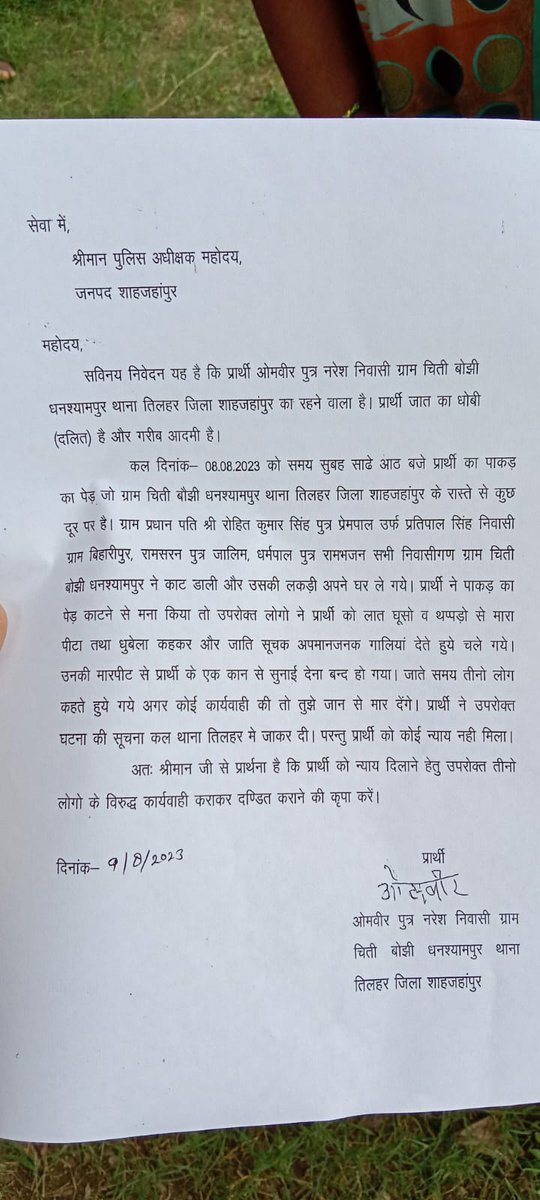 सेवा में,
श्रीमान पुलिस अधीक्षक महोदय,
जनपद शाहजहांपुर
महोदय,
सविनय निवेदन यह है कि प्रार्थी ओमवीर पुत्र नरेश निवासी ग्राम चिती बोझी
धनश्यामपुर थाना तिलहर जिला शाहजहांपुर का रहने वाला है। प्रार्थी जात का धोबी
(दलित) है और गरीब आदमी है।
कल दिनांक– 08.08.2023 को समय सुबह साढे आठ बजे प्रार्थी का पाकड़
का पेड़ जो ग्राम चिती बौझी धनश्यामपुर थाना तिलहर जिला शाहजहांपुर के रास्ते से कुछ
दूर पर है। ग्राम प्रधान पति श्री रोहित कुमार सिंह पुत्र प्रेमपाल उर्फ प्रतिपाल सिंह निवासी
ग्राम बिहारीपुर, रामसरन पुत्र जालिम, धर्मपाल पुत्र रामभजन सभी निवासीगण ग्राम चिती
बोझी धनश्यामपुर ने काट डाली और उसकी लकड़ी अपने घर ले गये। प्रार्थी ने पाकड़ का
पेड़ काटने से मना किया तो उपरोक्त लोगो ने प्रार्थी को लात घूसो व थप्पड़ो से मारा
पीटा तथा धुबेला कहकर और जाति सूचक अपमानजनक गालियां देते हुये चले गये।
उनकी मारपीट से प्रार्थी के एक कान से सुनाई देना बन्द हो गया। जाते समय तीनो लोग
कहते हुये गये अगर कोई कार्यवाही की तो तुझे जान से मार देंगे। प्रार्थी ने उपरोक्त
घटना की सूचना कल थाना तिलहर मे जाकर दी। परन्तु प्रार्थी को कोई न्याय नही मिला।
अतः श्रीमान जी से प्रार्थना है कि प्रार्थी को न्याय दिलाने हेतु उपरोक्त तीनो
लोगो के विरुद्ध कार्यवाही कराकर दण्डित कराने की कृपा करें।
दिनांक– 9/8/2023
प्रार्थी
ओमवीर
ओमवीर पुत्र नरेश निवासी ग्राम
चिती बोझी धनश्यामपुर थाना
तिलहर जिला शाहजहांपुर